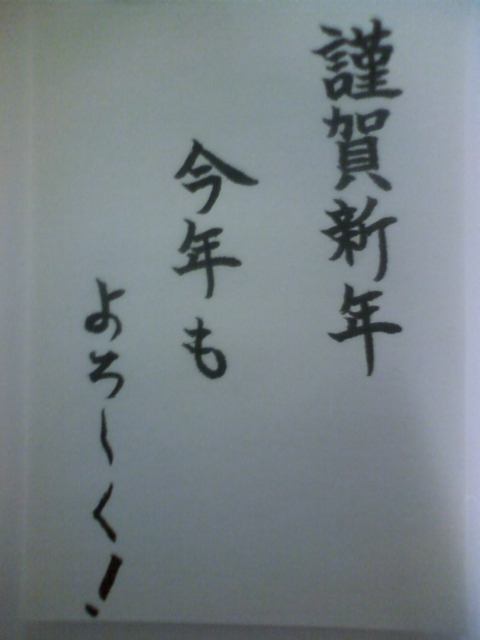 謹賀新年
今年も
よろしく!